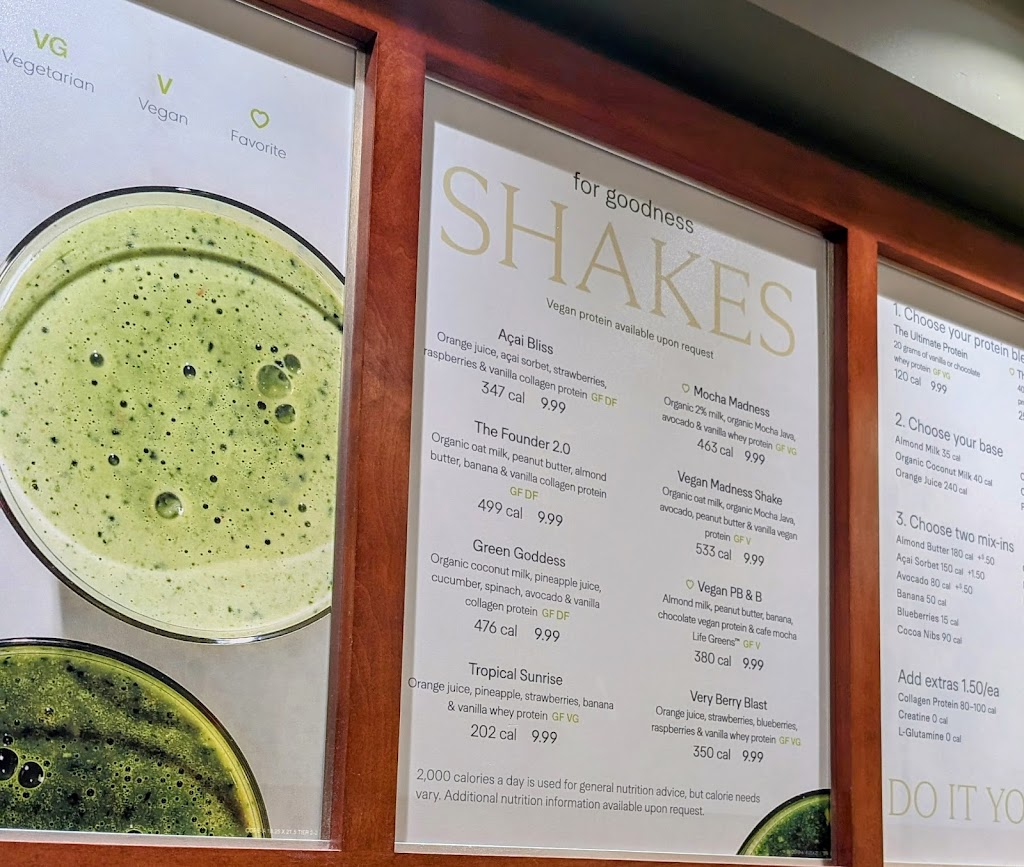 VG
Vegetarian
V
Vegan
Favorite
for goodness
SHAKES
Vegan protein available upon request
Açai Bliss
Orange juice, açai sorbet, strawberries,
raspberries & vanilla collagen protein GF DF
347 cal 9.99
The Founder 2.0
Organic oat milk, peanut butter, almond
butter, banana & vanilla collagen protein
GF DF
499 cal 9.99
Green Goddess
Organic coconut milk, pineapple juice,
cucumber, spinach, avocado & vanilla
collagen protein GF DF
476 cal 9.99
Tropical Sunrise
Orange juice, pineapple, strawberries, banana
& vanilla whey protein GF VG
202 cal 9.99
Mocha Madness
Organic 2% milk, organic Mocha Java,
avocado & vanilla whey protein GF VG
463 cal 9.99
Vegan Madness Shake
Organic oat milk, organic Mocha Java,
avocado, peanut butter & vanilla vegan
protein GF V
533 cal 9.99
Vegan PB & B
Almond milk, peanut butter, banana,
chocolate vegan protein & cafe mocha
Life Greens™ GF V
380 cal 9.99
Very Berry Blast
Orange juice, strawberries, blueberries,
raspberries & vanilla whey protein GF VG
350 cal 9.99
2,000 calories a day is used for general nutrition advice, but calorie needs
vary. Additional nutrition information available upon request.
1. Choose your protein ble
The Ultimate Protein
20 grams of vanilla or chocolate
whey protein GF VG
120 cal 9.99
2. Choose your base
Almond Milk 35 cal
Organic Coconut Milk 40 cal
Orange Juice 240 cal
3. Choose two mix-ins
Almond Butter 180 cal +1.50
Açai Sorbet 150 cal +1.50
Avocado 80 cal +1.50
Banana 50 cal
Blueberries 15 cal
Cocoa Nibs 90 cal
Add extras 1.50/ea
Collagen Protein 80-100 cal
Creatine 0 cal
L-Glutamine 0 cal
DO IT YO